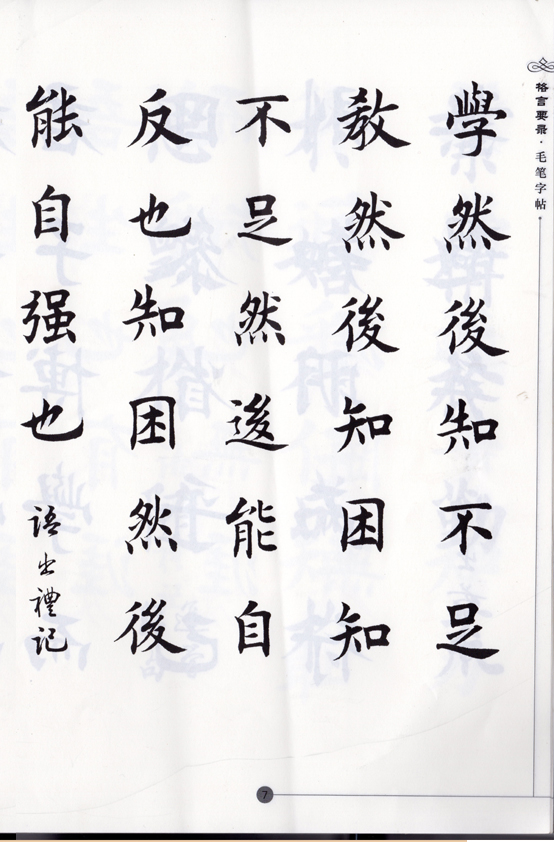 學然後知不足
教然後知困知
不足然後能自
反也知困然後
能自强也
语出禮记
格言要录·毛笔字帖
7